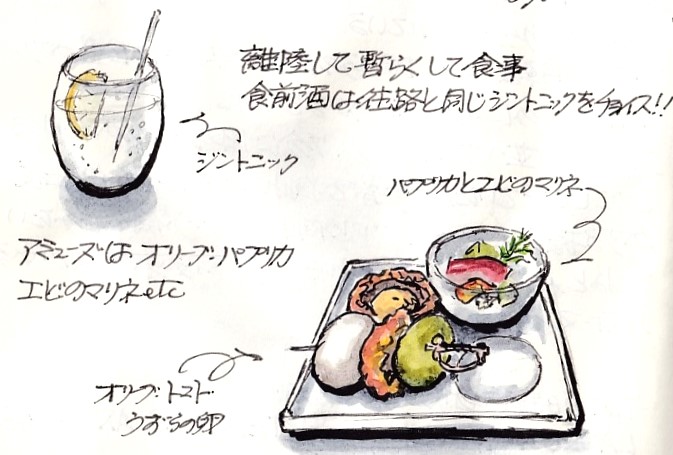 離陸して暫らくして食事
食前酒は往路と同じジントニックをチョイス!!
ジントニック
パプリカとエビのマリネ
アミューズは オリーブ・パプリカ
エビのマリネetc
オリーブ・トマト
うずらの卵